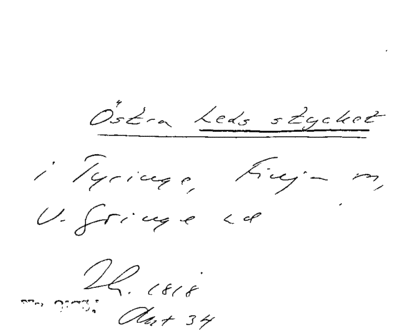 Östra Leds stycket
i Tyringe, Finja m,
V. Göinge hd
Lh. 1818
Akt 34